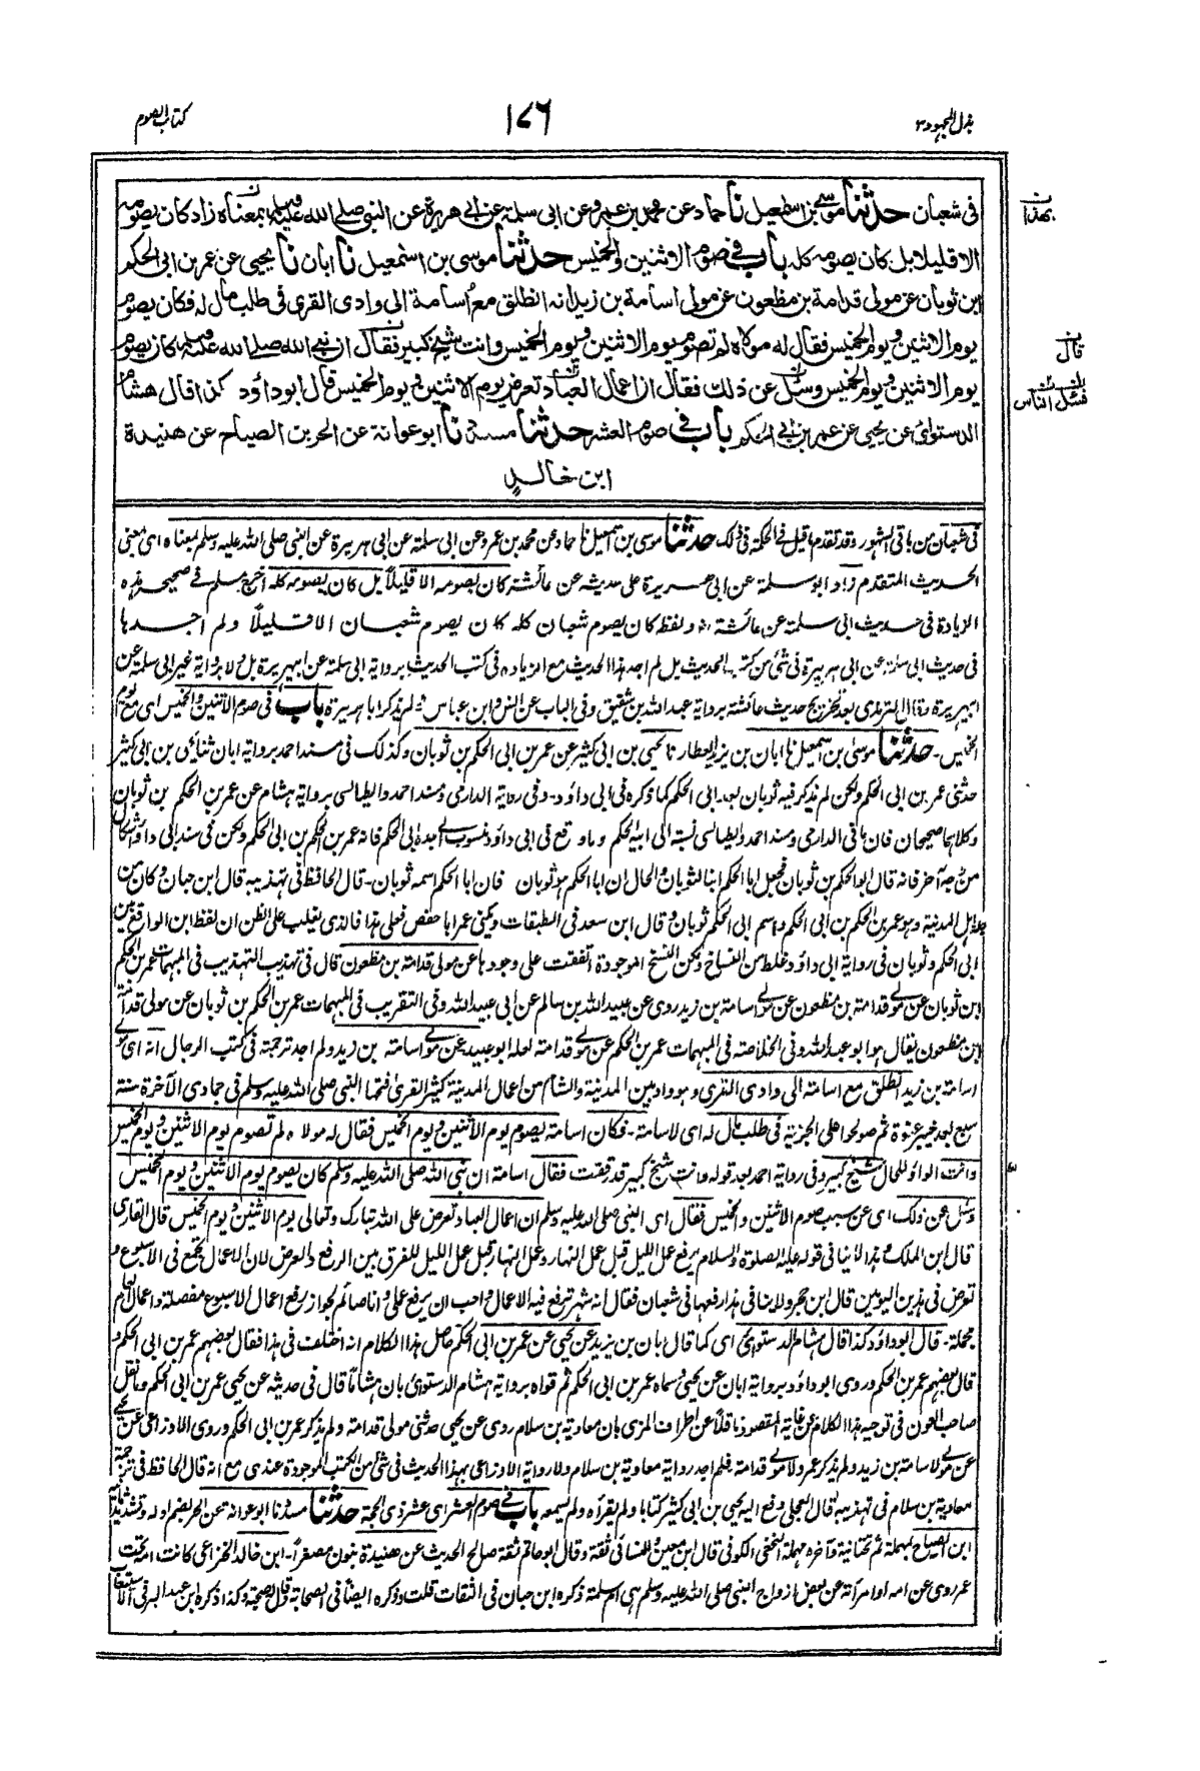 بذل المجهود ٣
١٧٦
كتاب الصوم
فى شعبان حدثنا موسى بن اسمعيل نا حماد عن محمد بن عمرو عن ابى سلمة عن ابى هريرة عن النبى صلى الله عليه وسلم بمعناه زاد كان يصومه
الا قليلا بل كان يصومه كله باب فى صوم الاثنين والخميس حدثنا موسى بن اسمعيل نا ابان نا يحيى عن عمر بن ابى الحكم
ابن ثوبان عن مولى قدامة بن مظعون عن مولى اسامة بن زيد انه انطلق مع اسامة الى وادى القرى فى طلب مال له فكان يصوم
يوم الاثنين ويوم الخميس فقال له مولاه لم تصوم يوم الاثنين ويوم الخميس وانت شيخ كبير فقال ان نبى الله صلى الله عليه وسلم كان يصوم
يوم الاثنين ويوم الخميس وسئل عن ذلك فقال ان اعمال العباد تعرض يوم الاثنين ويوم الخميس قال ابو داؤد كذا قال هشام
الدستوائى عن يحيى عن عمر بن ابى الحكم باب فى صوم العشر حدثنا مسدد نا ابو عوانة عن الحر بن الصياح عن هنيدة
ابن خالد
بهذا
قال
فسئل الناس
فى شعبان من باقى الشهور وقد تقدم ما قيل فى الحكمة فى ذلك حدثنا موسى بن اسمعيل نا حماد عن محمد بن عمرو عن ابى سلمة عن ابى هريرة عن النبى صلى الله عليه وسلم بمعناه اى بمعنى
الحديث المتقدم زاد ابو سلمة عن ابى هريرة على حديثه عن عائشة كان يصومه الا قليلاً بل كان يصومه كله اخرج مسلم فى صحيحه هذه
الزيادة فى حديث ابى سلمة عن عائشة ولفظ كان يصوم شعبان كله كان يصوم شعبان الا قليلاً ولم اجدها
فى حديث ابى سلمة عن ابى هريرة فى شئ من كتب الحديث بل لم اجد هذا الحديث مع الزياده فى كتب الحديث برواية ابى سلمة عن ابى هريرة بل ولا برواية غير ابى سلمة عن
ابى هريرة وقال الترمذى بعد تخريج حديث عائشة برواية عبد الله بن شقيق وفى الباب عن انس وابن عباس ولم يذكر ابا هريرة باب فى صوم الاثنين والخميس اى مع يوم
الخميس۔ حدثنا موسى بن اسمعيل نا ابان بن يزيد العطار نا يحيى بن ابى كثير عن عمر بن ابى الحكم بن ثوبان وكذلك فى مسند احمد برواية ابان ثنا يحيى بن ابى كثير
حدثنى عمر بن ابى الحكم ولكن لم يذكر فيه ثوبان بعد ابى الحكم كما ذكره فى ابى داؤد۔ وفى رواية الدارمى ومسند احمد والطيالسى برواية هشام عن عمر بن الحكم بن ثوبان
وكلاهما صحيحان فان ما فى الدارمى ومسند احمد والطيالسى نسبة الى ابيه الحكم وما وقع فى ابى داؤد منسوب الى جده ابى الحكم فانه عمر بن الحكم بن ابى الحكم ولكن فى سند ابى داؤد اشكال
من جهة اخرى فانه قال ابو الحكم بن ثوبان فجعل ابا الحكم ابنا لثوبان والحال ان ابا الحكم هو ثوبان فان ابا الحكم اسمه ثوبان۔ قال الحافظ فى تهذيبه قال ابن حبان وكان من
جلة اهل المدينة وهو عمر بن الحكم بن ابى الحكم واسم ابى الحكم ثوبان وقال ابن سعد فى الطبقات ويكنى عمر ابا حفص فعلى هذا فالذى يغلب على الظن ان لفظ ابن الواقع بين
ابى الحكم وثوبان فى رواية ابى داؤد غلط من النساخ ولكن النسخ الموجودة اتفقت على وجودها عن مولى قدامة بن مظعون قال فى تهذيب التهذيب فى المبهمات عمر بن الحكم
ابن ثوبان عن مولى قدامة بن مظعون عن مولى اسامة بن زيد روى عن عبيد الله بن سالم عن ابى عبيد الله وفى التقريب فى المبهمات عمر بن الحكم بن ثوبان عن مولى قدامة
ابن مظعون يقال هو ابو عبيد الله وفى الخلاصة فى المبهمات عمر بن الحكم عن مولى قدامة لعله ابو عبيد عن مولى اسامة بن زيد ولم اجد ترجمته فى كتب الرجال انه اى مولى
اسامة بن زيد انطلق مع اسامة الى وادى القرى وهو واد بين المدينة والشام من اعمال المدينة كثير القرى فتحها النبى صلى الله عليه وسلم فى جمادى الآخرة سنة
سبع بعد خيبر عنوة ثم صولحوا على الجزية فى طلب مال له اى لاسامة۔ فكان اسامة يصوم يوم الاثنين ويوم الخميس فقال له مولاه لم تصوم يوم الاثنين ويوم الخميس
وانت الواو للحال شيخ كبير وفى رواية احمد بعد قوله وانت شيخ كبير قد رققت فقال اسامة ان نبى الله صلى الله عليه وسلم كان يصوم يوم الاثنين ويوم الخميس
وسئل عن ذلك اى عن سبب صوم الاثنين والخميس فقال اى النبى صلى الله عليه وسلم ان اعمال العباد تعرض على الله تبارك وتعالى يوم الاثنين ويوم الخميس قال القارى
قال ابن الملك وهذا لا ينافى قوله عليه الصلوة والسلام يرفع عمل الليل قبل عمل النهار وعمل النهار قبل عمل الليل للفرق بين الرفع والعرض لان الاعمال تجمع فى الاسبوع و
تعرض فى هذين اليومين قال ابن حجر ولا ينافى هذا رفعها فى شعبان فقال انه شهر ترفع فيه الاعمال واحب ان يرفع عملى وانا صائم لجواز رفع اعمال الاسبوع مفصلة واعمال العام
مجملة۔ قال ابو داؤد كذا قال هشام الدستوائى اى كما قال ابان بن يزيد عن يحيى عن عمر بن ابى الحكم حاصل هذا الكلام انه اختلف فى هذا فقال بعضهم عمر بن ابى الحكم و
قال بعضهم عمر بن الحكم وروى ابو داؤد برواية ابان عن يحيى وسماه عمر بن ابى الحكم ثم قواه برواية هشام الدستوائى بان هشاماً قال فى حديثه عن يحيى عمر بن ابى الحكم وما نقل
صاحب العون فى توجيه هذا الكلام عن غاية المقصود ناقلاً عن اطراف المزى بان معاوية بن سلام روى عن يحيى حدثنى مولى قدامة ولم يذكر عمر بن ابى الحكم وروى الاوزاعى عن يحيى
عن مولى اسامة بن زيد ولم يذكر عمر ولا مولى قدامة فلم اجد رواية معاوية بن سلام ولا رواية الاوزاعى بهذا الحديث فى شئ من الكتب الموجودة عندى مع انه قال الحافظ فى ترجمة
معاوية بن سلام فى تهذيبه قال العجلى دفع اليه يحيى بن ابى كثير كتابا ولم يقرأه ولم يسمعه باب فى صوم العشر اى عشر ذى الحجة حدثنا مسدد نا ابو عوانة عن الحر بضم اوله وتشديد ثانيه
ابن الصياح بمهملة ثم تحتانية وآخره مهملة النخعى الكوفى قال ابن معين والنسائى ثقة وقال ابو حاتم ثقة صالح الحديث عن هنيدة بنون مصغراً۔ ابن خالد الخزاعى كانت امه تحت
عمر روى عن امه او امرأته عن بعض ازواج النبى صلى الله عليه وسلم هى ام سلمة ذكره ابن حبان فى الثقات قلت وذكره ايضاً فى الصحابة وقال له صحبة وكذا ذكره ابن عبد البر فى الاستيعاب